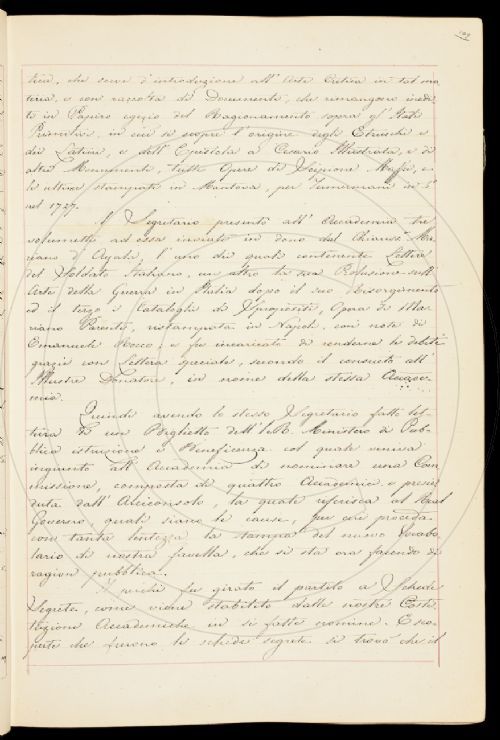 tica, che serve d'introduzione all'Arte Critica in tal ma
teria, e con raccolta di Documenti, che rimangono inedi
ti in Papiro egizio del Ragionamento sopra gl'Itali
Primitivi, in cui si scopre l'origine degli Etruschi e
dei Latini, e dell'Epistola a Cesario Illustrata, e di
altri Monumenti, tutte Opere di Scipione Maffei, e
le ultime stampate in Mantova, per Tumermani in 8°
nel 1727.
Il Segretario presentò all'Accademia tre
volumetti ad essa inviati in dono dal Chiariss. Ma
riano d'Ayala, l'uno dei quali contenente Lettere
del Soldato Italiano, un altro la sua Prolusione sull'
Arte della Guerra in Italia dopo il suo Risorgimento
ed il terzo i Cataloghi di Opera di Ma
riano Parente, ristampata in Napoli, con note di
Emanuele Rocco, e fu incaricato di renderne le debite
grazie con lettera speciale, secondo il consueto all'
Illustre Donatore, in nome della stessa Accade
mia.
Quindi avendo lo stesso Segretario fatto let
tura di un Biglietto dell'I. R. Ministero di Pub
blica istruzione e Beneficenza col quale veniva
ingiunto all'Accademia di nominare una Com
missione, composta di quattro Accademici e presie
duta dall'Arciconsolo, la quale riferisca al Real
Governo, quali siano le cause, per cui proceda
con tanta lentezza la stampa del nuovo Vocabo
lario di nostra favella, che si sta ora facendo di
ragion pubblica.
fu girato il partito a Schede
Segrete, come viene stabilito dalle nostre Costi
tuzioni Accademiche in sì fatte nomine. E sco
perte che furono le schede segrete, si trovò che il